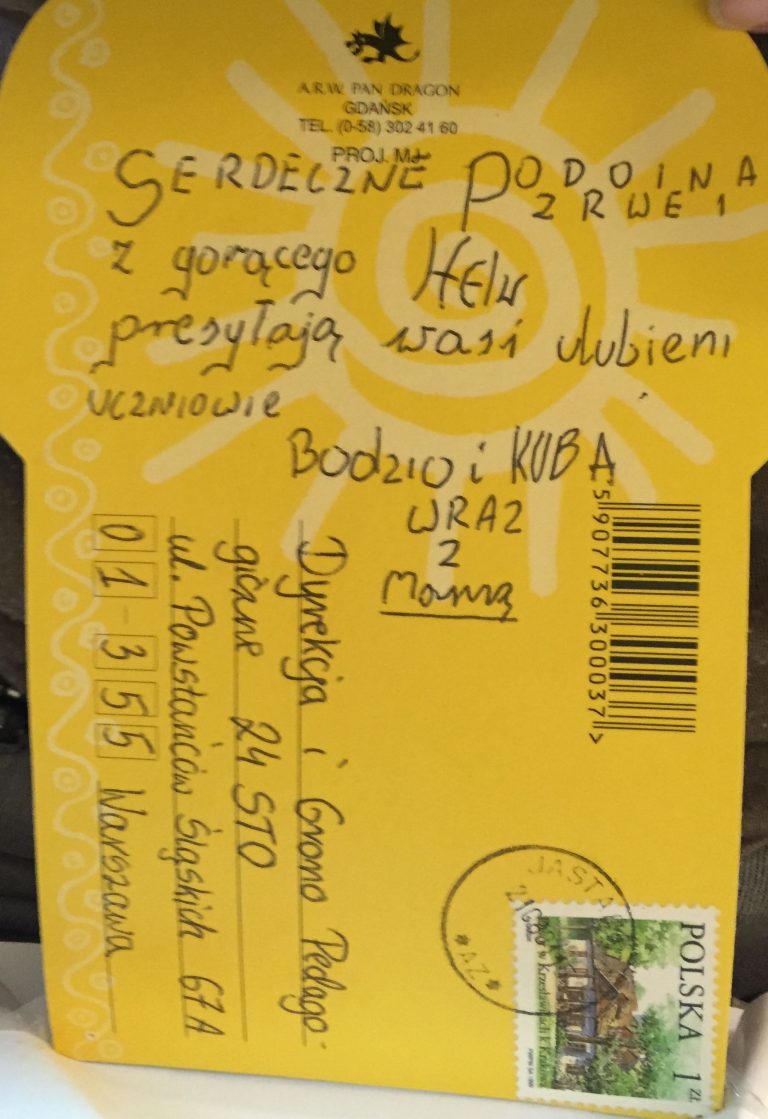 A.R.W. PAN DRAGON
GDAŃSK
TEL. (0-58) 302 41 60
PROJ. MŁ
SERDECZNE POZDROWIENIA
z gorącego Helu
presyłają wasi ulubieni
uczniowie
Bodzio i KUBA
WRAZ
z
Mamą
5907736300037>
Dyrekcja i Grono Pedago-
giczne 24 STO
ul. Powstańców Śląskich 67A
01-355 Warszawa
JASTA
POLSKA 1 ZŁ